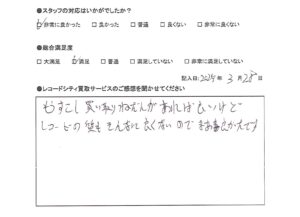 ●スタッフの対応はいかがでしたか?
□非常に良かった □良かった □普通 □良くない □非常に良くない
●総合満足度
□大満足 □満足 □普通 □満足していない □非常に満足していない
記入日:2024年 3月 28日
●レコードシティ買取サービスのご感想を聞かせてください
もうすこし 買い取りねだんが あれば 良いけど
レコードの 質も そんなに 良くない ので まあまあ良かったです